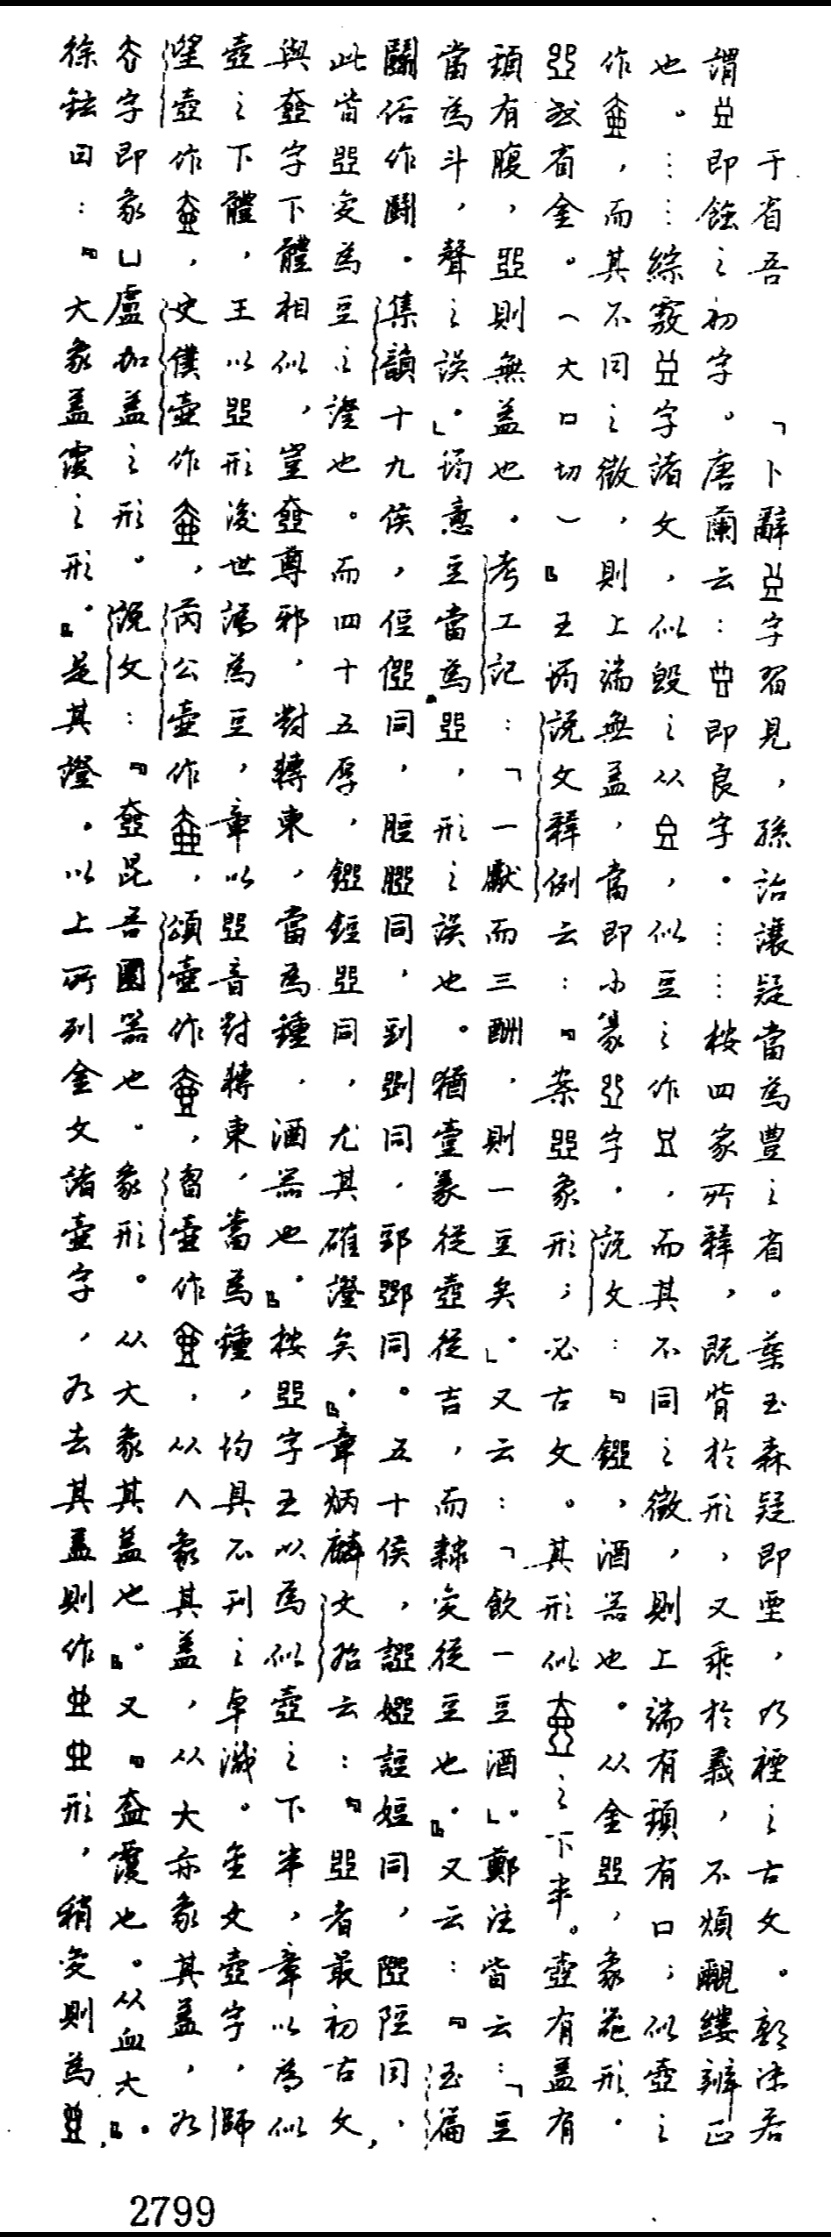 于省吾 「卜辭字習見，孫詒讓疑當為豊之省。葉玉森疑即垔，乃禋之古文。郭沫若
謂即蝕之初字。唐蘭云：即良字。……按四家所釋，既背於形，又乖於義，不煩覼縷辨正
也。……綜覈字諸文，似毁之从，似豆之作，而其不同之徵，則上端有頸有口；似壺之
作，而其不同之徵，則上端無蓋，當即小篆字。說文：『，酒器也。从金，象器形。
或省金。（大口切）』王筠說文釋例云：『案象形；必古文。其形似之下半。壺有蓋有
頸有腹，則無蓋也。考工記：「一獻而三酬，則一豆矣」。又云：「飲一豆酒」。鄭注皆云：「豆
當為斗，聲之誤」。筠意豆當為，形之誤也。猶壹篆從壺從吉，而隸變從豆也。』又云：『玉篇
鬭俗作鬪。集韻十九侯，同，脰同，剅同，郖同。五十侯，䛠同，同，
此皆變為豆之證也。而四十五厚，鋀同，尤其確證矣。』章炳麟文始云：『者最初古文，
與字下體相似，豈尊邪，對轉東，當為鍾，酒器也。』按字王以為似壺之下半，章以為似
壺之下體，王以形後世譌為豆，章以音對轉東，當為鍾，均具不刊之卓識。金文壺字，師
望壺作，史僕壺作，芮公壺作，頌壺作，壺作，从人象其蓋，从大亦象其蓋，乃
字即象凵盧加蓋之形。說文：『壺昆吾圜器也。象形。从大象其蓋也。』又『盇覆也。从血大。』
徐鉉曰：『大象蓋覆之形。』是其證。以上所列金文諸壺字，乃去其蓋則作形，稍變則為
2799